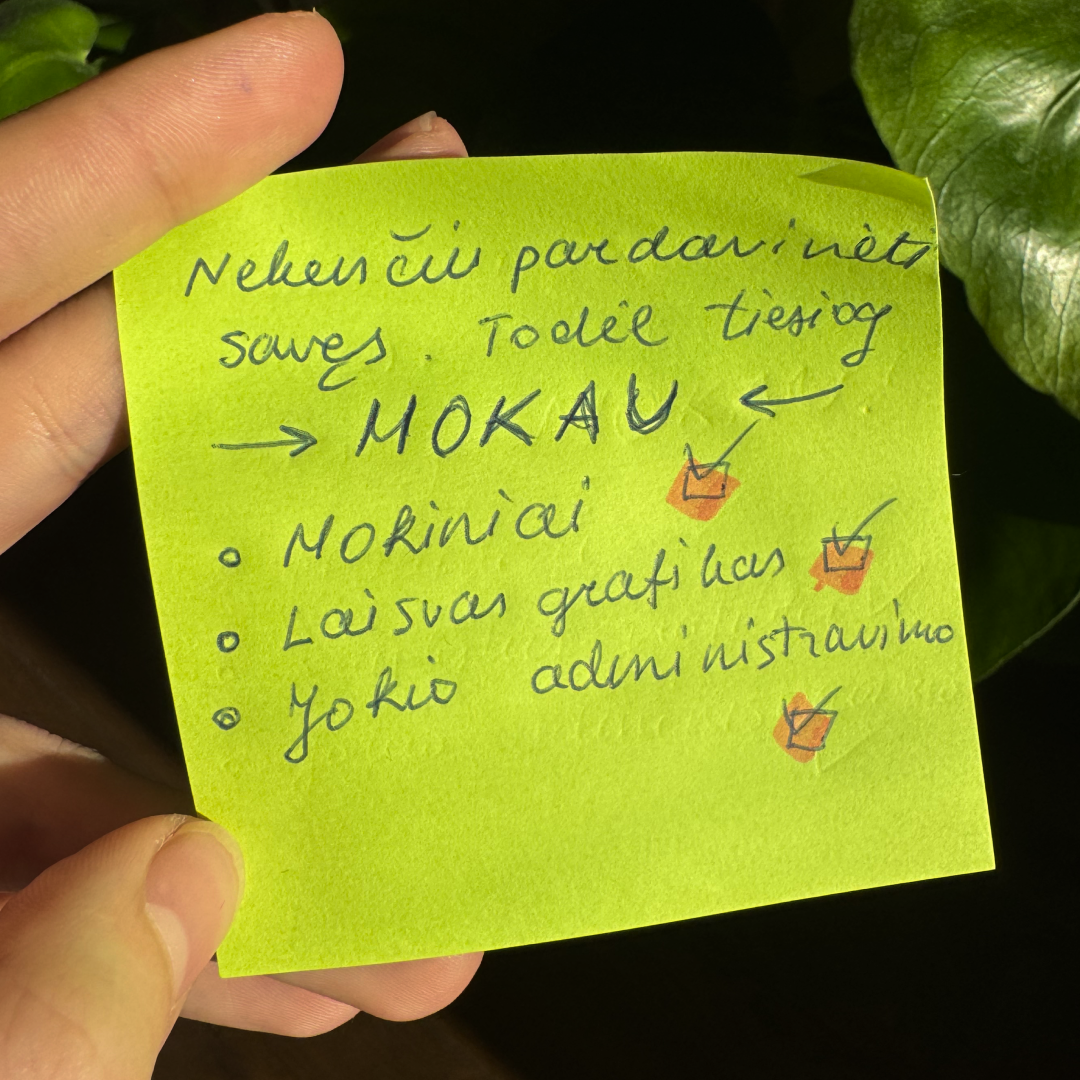 Nekenčiu pardavinėti
savęs. Todėl tiesiog
→ MOKAU ←
• Mokiniai ☑
• Laisvas grafikas ☑
• Jokio administravimo
☑